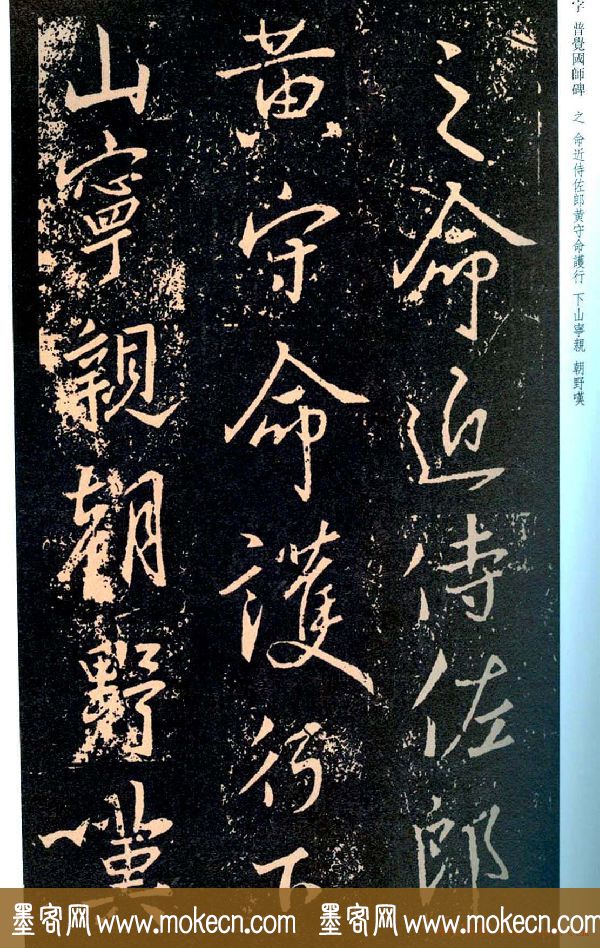 之命近侍佐郎
黄守命護行下
山寧親朝野嘆
字 普覺國師碑 之 命近侍佐郎黄守命護行 下山寧親 朝野嘆
墨客网 www.mokecn.com 墨客网 www.mokecn.com